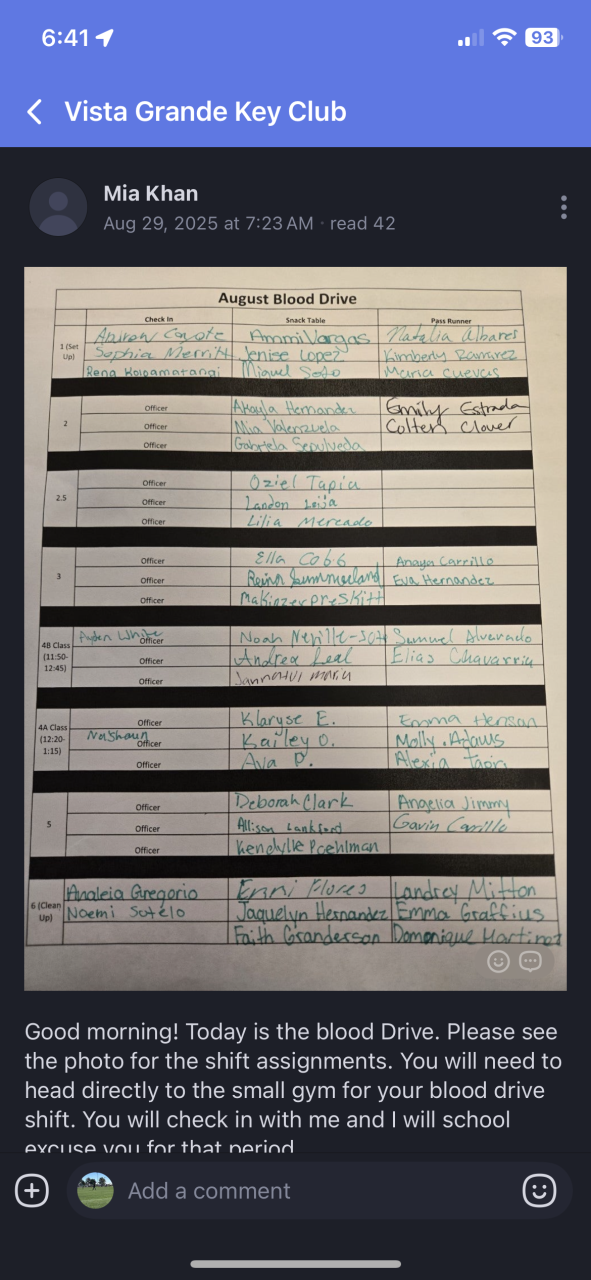 6:41
93
Vista Grande Key Club
Mia Khan
Aug 29, 2025 at 7:23 AM · read 42
August Blood Drive
Check In Snack Table Pass Runner
1 (Set Up)
Ammi Vargas Natalia Albares
Sophia Merritt Jenise Lopez Kimberly Ramirez
Rena Miguel Soto Maria Cuevas
2
Officer Akayla Hernandez Emily Estrada
Officer Mia Valenzuela Colten Clover
Officer Gabriela Sepulveda
2.5
Officer Oziel Tapia
Officer Landon Leija
Officer Lilia Mercado
3
Officer Ella Cobb Anaya Carrillo
Officer Summerland Eva Hernandez
Officer Makinzee Preskitt
4B Class (11:50-12:45)
Ayden White Officer Noah Neville-Soto Samuel Alvarado
Officer Andrea Leal Elias Chavarria
Officer Maria
4A Class (12:20-1:15)
Officer Klaryse E. Emma Henson
Nashaun Officer Kailey O. Molly Adams
Officer Ava P. Alexia
5
Officer Deborah Clark Angelia Jimmy
Officer Allison Lankford Gavin Carrillo
Officer Kendylle Poehlman
6 (Clean Up)
Analeia Gregorio Erini Flores Landrey Mitton
Noemi Sotelo Jaquelyn Hernandez Emma Graffius
Faith Granderson Domonique Martinez
Good morning! Today is the blood Drive. Please see
the photo for the shift assignments. You will need to
head directly to the small gym for your blood drive
shift. You will check in with me and I will school
excuse you for that period
Add a comment